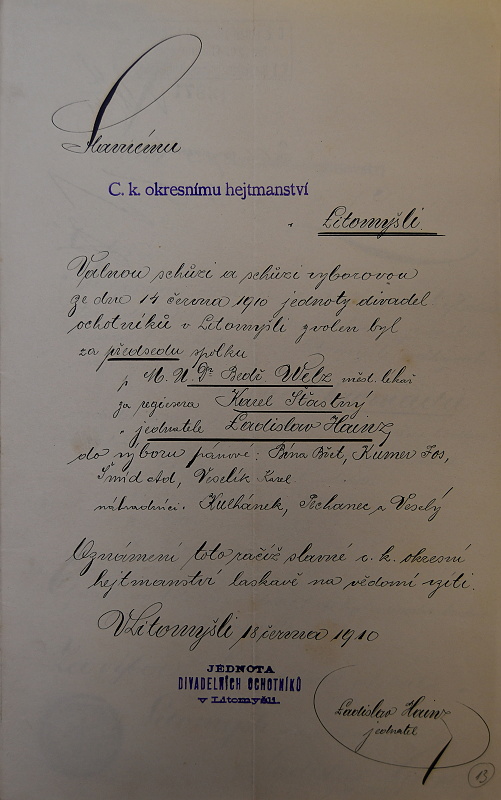 Slavnému
C. k. okresnímu hejtmanství
v Litomyšli.
Valnou schůzí a schůzí výborovou
ze dne 14 června 1910 jednoty divadel
ochotníků v Litomyšli zvolen byl
za předsedu spolku
p M. U. Dr Bedř Welz měst. lékař
za regisera Karel Šťastný
" jednatele Ladislav Hainz
do výboru pánové: Bína Břet, Kumer Jos,
Šmíd Ad, Veselík Karel
náhradníci. Kulhánek, Pochanec a Veselý
Oznámení toto račiž slavné c. k. okresní
hejtmanství laskavě na vědomí vzíti.
V Litomyšli 18 června 1910
JEDNOTA
DIVADELNÍCH OCHOTNÍKŮ
v Litomyšli.
Ladislav Hainz
jednatel
13